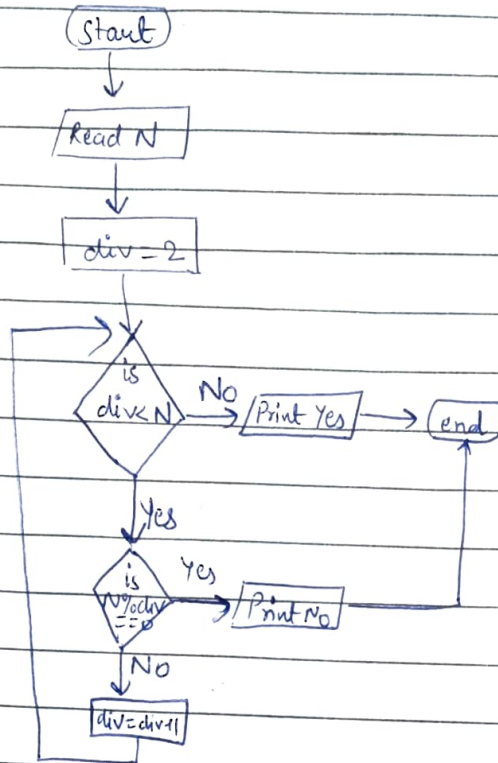 Start
Read N
div = 2
is
div< N
No
Print Yes
end
Yes
is
N%div
==0
Yes
Print No
No
div=div+1